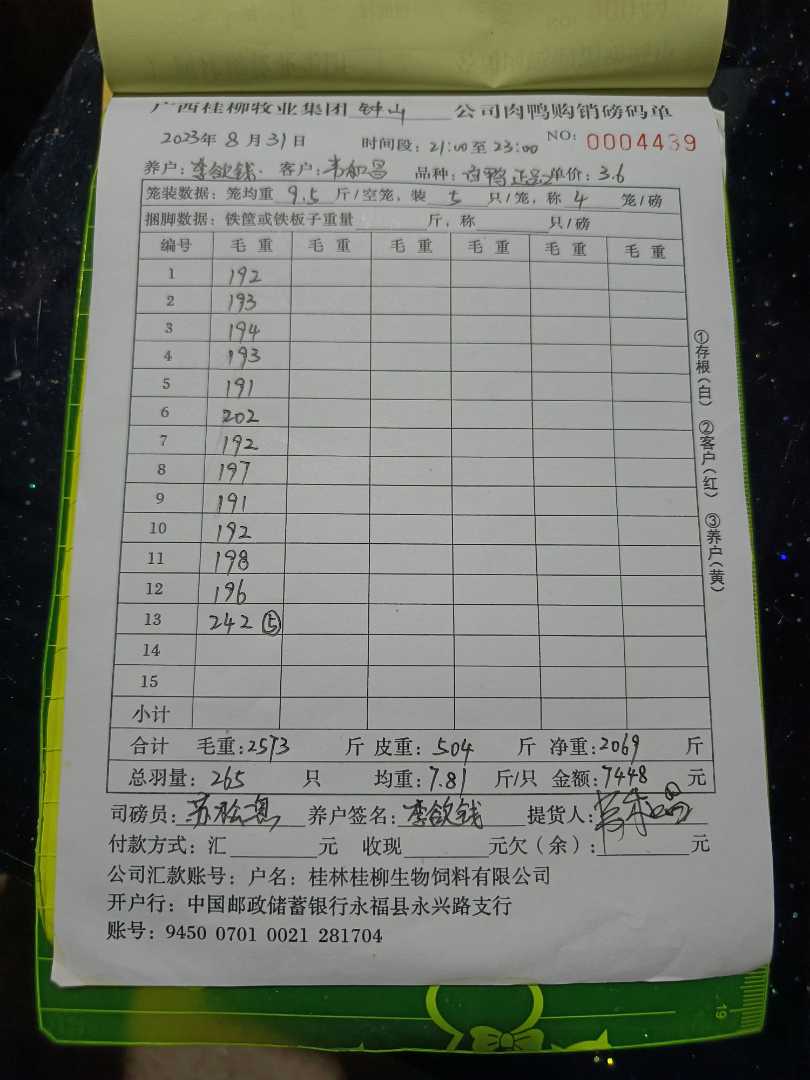 广西桂柳牧业集团 钟山 公司肉鸭购销磅码单
2023年 8 月 31 日 时间段: 21:00 至 23:00 NO: 0004439
养户: 李钦钱 客户: 韦 昌 品种: 白鸭 正品 单价: 3.6
笼装数据: 笼均重 9.5 斤/空笼, 装 5 只/笼, 称 4 笼/磅
捆脚数据: 铁筐或铁板子重量 斤, 称 只/磅
编号 毛 重 毛 重 毛 重 毛 重 毛 重 毛 重
1 192
2 193
3 194
4 193
5 191
6 202
7 192
8 197
9 191
10 192
11 198
12 196
13 242 ⑤
14
15
小计
合计 毛重: 2573 斤 皮重: 504 斤 净重: 2069 斤
总羽量: 265 只 均重: 7.81 斤/只 金额: 7448 元
司磅员: 苏 养户签名: 李钦钱 提货人: 昌
付款方式: 汇 元 收现 元欠(余): 元
公司汇款账号: 户名: 桂林桂柳生物饲料有限公司
开户行: 中国邮政储蓄银行永福县永兴路支行
账号: 9450 0701 0021 281704
①存根(白) ②客户(红) ③养户(黄)
19